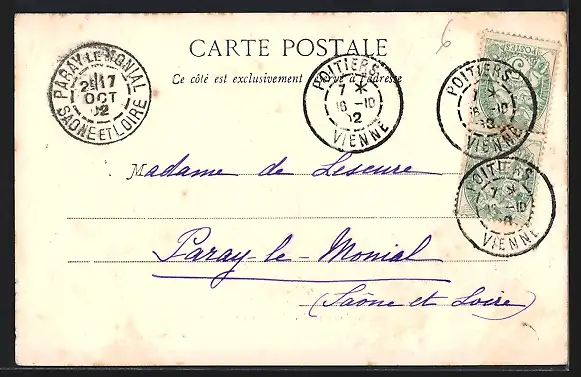 CARTE POSTALE
Ce côté est exclusivement réservé à l'adresse
6
PARAY-LE-MONIAL
2E 17
OCT
02
SAONE ET LOIRE
POITIERS
7 *
16 -10
02
VIENNE
POITIERS
7 *
16 -10
VIENNE
POITIERS
7 *
16 -10
VIENNE
POSTES
Madame de Lescure
Paray-le-Monial
(Saône et Loire)